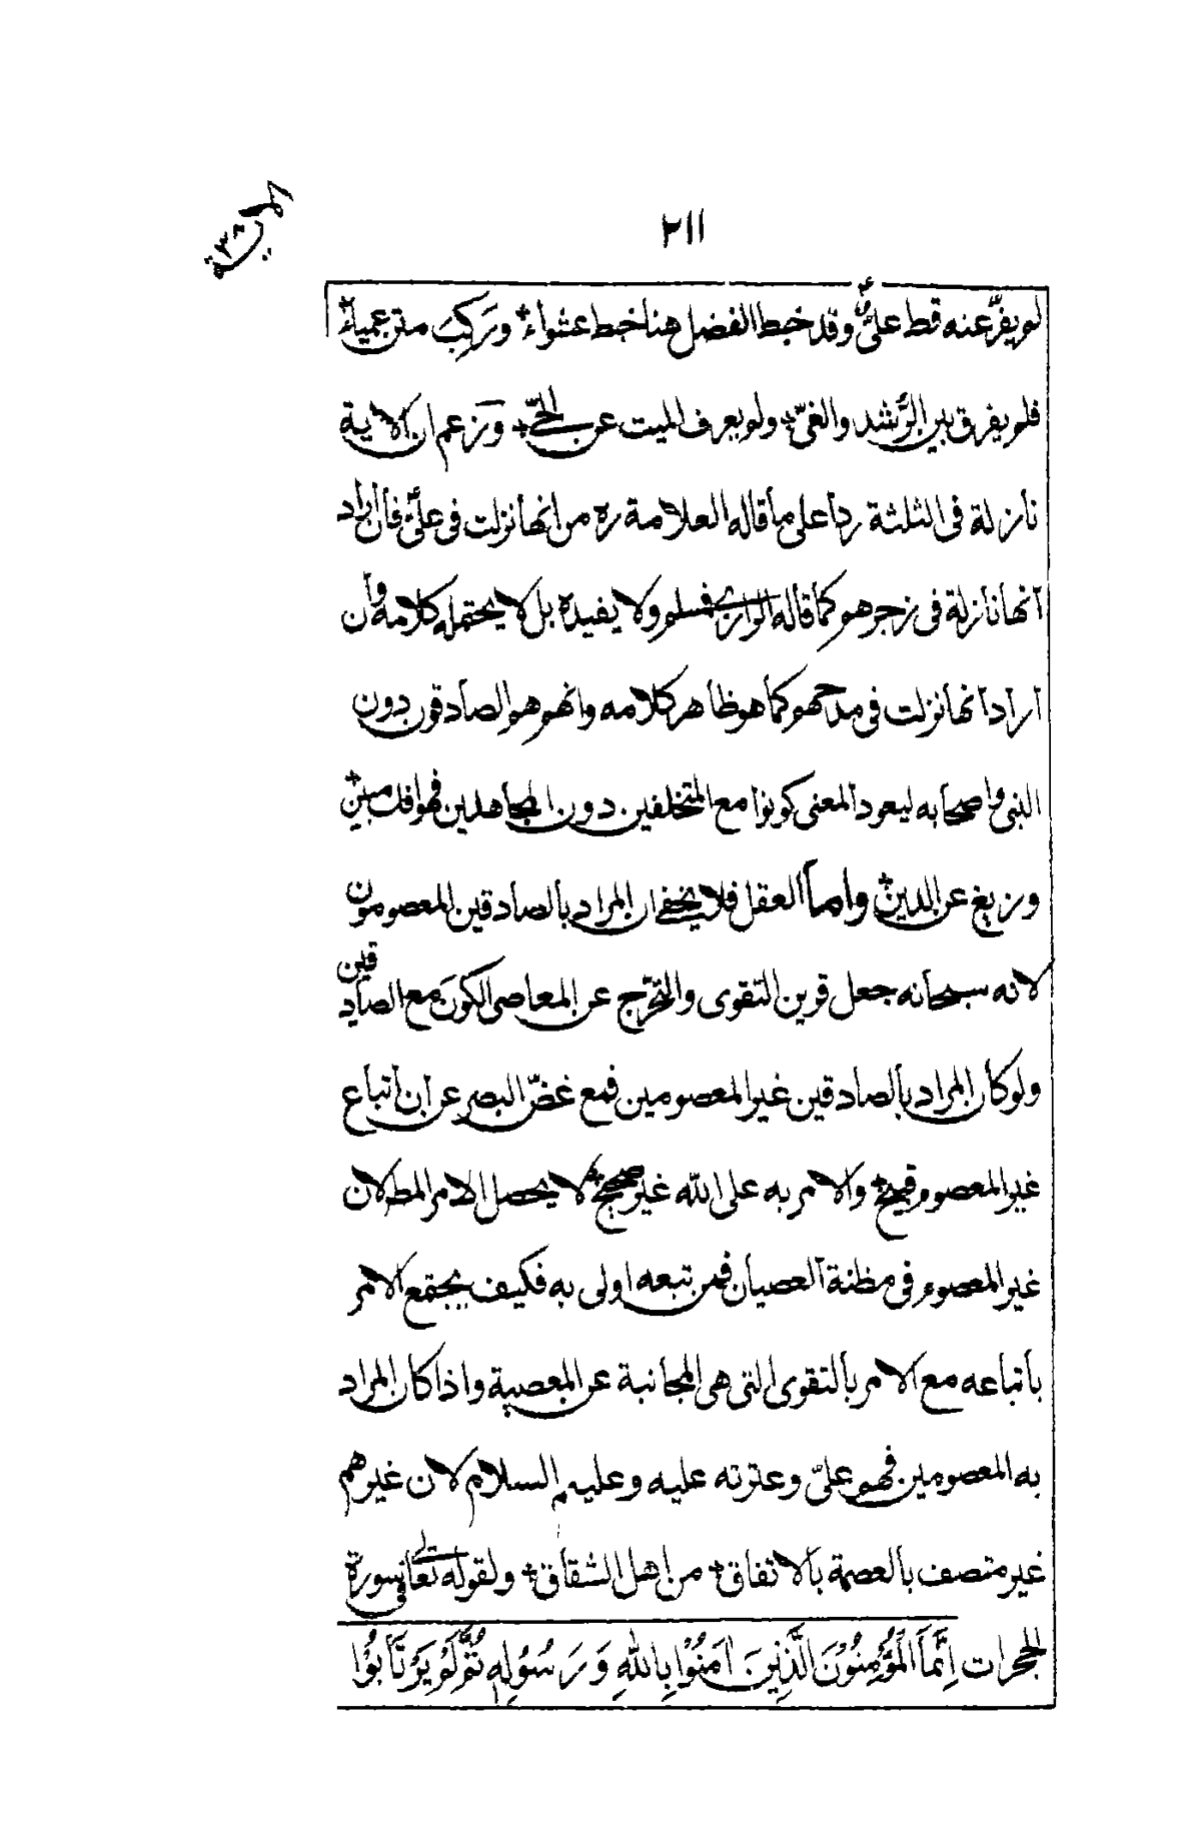 ٢١١
الآية ٣٨
لم يفرّ عنه قط علىّؑ وقد خبط الفضل هنا خبط عشواء ورَكِبَ متن عمياء
فلم يفرق بين الرّشد والغىّ ولم يعرف الميت عن الحىّ وزعم ان الآية
نازلة فى الثلثة ردا على ما قاله العلامة ره من انها نزلت فى علىؑ فان اراد
انها نازلة فى زجرهم كما قاله الرازى فمسلم ولا يفيده بل لا يحتمله كلامه وان
اراد انها نزلت فى مدحهم كما هو ظاهر كلامه وانهم هم الصادقون دون
النبى واصحابه ليعود المعنى كونوا مع المتخلفين دون المجاهدين فهو افك مبين
وزيغ عن الدين واما العقل فلا يخفى ان المراد بالصادقين المعصومون
لانه سبحانه جعل قرين التقوى والتحرّج عن المعاصى الكونَ مع الصادقين
ولو كان المراد بالصادقين غير المعصومين فمع غضّ البصر عن ان اتباع
غير المعصوم قبيح والامر به على الله غير صحيح لا يحصل الامر المط لان
غير المعصوم فى مظنة العصيان فمن تبعه اولى به فكيف يجتمع الامر
باتباعه مع الامر بالتقوى التى هى المجانبة عن المعصية واذا كان المراد
به المعصومين فهو علىّ وعترته عليه وعليهم السلام لان غيرهم
غير متصف بالعصمة بالاتفاق من اهل الشقاق ولقوله تعالى فى سورة
الحجرات اِنَّمَا الْمُؤْمِنُوْنَ الَّذِيْنَ اٰمَنُوْا بِاللّٰهِ وَرَسُوْلِهٖ ثُمَّ لَمْ يَرْتَابُوْا